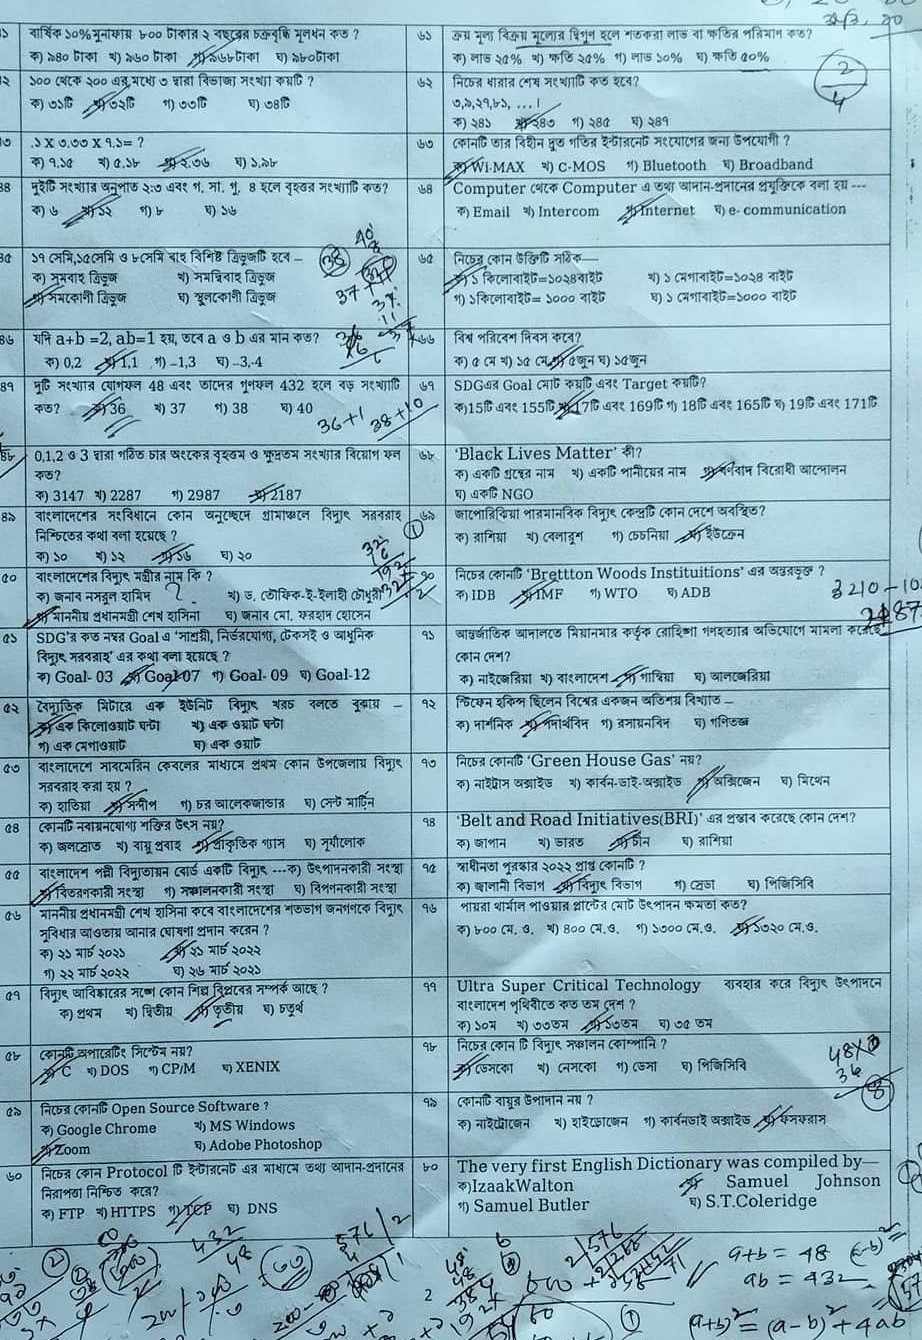 ৪১ বার্ষিক ১০% মুনাফায় ৮০০ টাকার ২ বছরের চক্রবৃদ্ধি মূলধন কত ?
ক) ৯৪০ টাকা খ) ৯৬০ টাকা গ) ৯৬৮ টাকা ঘ) ৯৮০ টাকা
১০০ থেকে ২০০ এর মধ্যে ৩ দ্বারা বিভাজ্য সংখ্যা কয়টি ?
ক) ৩১টি খ) ৩২টি গ) ৩৩টি ঘ) ৩৪টি
.১ X ৩.৩৩ X ৭.১= ?
ক) ৭.১৫ খ) ৫.১৮ গ) ২.৩৬ ঘ) ১.৯৮
৪৪ দুইটি সংখ্যার অনুপাত ২:৩ এবং গ. সা. গু. ৪ হলে বৃহত্তর সংখ্যাটি কত?
ক) ৬ খ) ১২ গ) ৮ ঘ) ১৬
৪৫ ১৭ সেমি,১৫সেমি ও ৮সেমি বাহু বিশিষ্ট ত্রিভুজটি হবে –
ক) সমবাহু ত্রিভুজ খ) সমদ্বিবাহু ত্রিভুজ
গ) সমকোণী ত্রিভুজ ঘ) স্থুলকোণী ত্রিভুজ
৪৬ যদি a+b =2, ab=1 হয়, তবে a ও b এর মান কত?
ক) 0,2 খ) 1,1 গ) –1,3 ঘ) –3,-4
৪৭ দুটি সংখ্যার যোগফল 48 এবং তাদের গুণফল 432 হলে বড় সংখ্যাটি
কত? ক) 36 খ) 37 গ) 38 ঘ) 40
36+1 38+10
৪৮ 0,1,2 ও 3 দ্বারা গঠিত চার অংকের বৃহত্তম ও ক্ষুদ্রতম সংখ্যার বিয়োগ ফল
কত?
ক) 3147 খ) 2287 গ) 2987 ঘ) 2187
৪৯ বাংলাদেশের সংবিধানে কোন অনুচ্ছেদে গ্রামাঞ্চলে বিদ্যুৎ সরবরাহ
নিশ্চিতের কথা বলা হয়েছে ?
ক) ১০ খ) ১২ গ) ১৬ ঘ) ২০
৫০ বাংলাদেশের বিদ্যুৎ মন্ত্রীর নাম কি ?
ক) জনাব নসরুল হামিদ খ) ড. তৌফিক-ই-ইলাহী চৌধুরী
গ) মাননীয় প্রধানমন্ত্রী শেখ হাসিনা ঘ) জনাব মো. ফরহাদ হোসেন
৫১ SDG'র কত নম্বর Goal এ 'সাশ্রয়ী, নির্ভরযোগ্য, টেকসই ও আধুনিক
বিদ্যুৎ সরবরাহ' এর কথা বলা হয়েছে ?
ক) Goal- 03 খ) Goal-07 গ) Goal- 09 ঘ) Goal-12
৫২ বৈদ্যুতিক মিটারে এক ইউনিট বিদ্যুৎ খরচ বলতে বুঝায় –
ক) এক কিলোওয়াট ঘন্টা খ) এক ওয়াট ঘন্টা
গ) এক মেগাওয়াট ঘ) এক ওয়াট
৫৩ বাংলাদেশে সাবমেরিন কেবলের মাধ্যমে প্রথম কোন উপজেলায় বিদ্যুৎ
সরবরাহ করা হয় ?
ক) হাতিয়া খ) সন্দ্বীপ গ) চর আলেকজান্ডার ঘ) সেন্ট মার্টিন
৫৪ কোনটি নবায়নযোগ্য শক্তির উৎস নয়?
ক) জলস্রোত খ) বায়ু প্রবাহ গ) প্রাকৃতিক গ্যাস ঘ) সূর্যালোক
৫৫ বাংলাদেশ পল্লী বিদ্যুতায়ন বোর্ড একটি বিদ্যুৎ ---ক) উৎপাদনকারী সংস্থা
খ) বিতরণকারী সংস্থা গ) সঞ্চালনকারী সংস্থা ঘ) বিপণনকারী সংস্থা
৫৬ মাননীয় প্রধানমন্ত্রী শেখ হাসিনা কবে বাংলাদেশের শতভাগ জনগণকে বিদ্যুৎ
সুবিধার আওতায় আনার ঘোষণা প্রদান করেন ?
ক) ২১ মার্চ ২০২১ খ) ২১ মার্চ ২০২২
গ) ২২ মার্চ ২০২২ ঘ) ২৬ মার্চ ২০২১
৫৭ বিদ্যুৎ আবিষ্কারের সঙ্গে কোন শিল্প বিপ্লবের সম্পর্ক আছে ?
ক) প্রথম খ) দ্বিতীয় গ) তৃতীয় ঘ) চতুর্থ
৫৮ কোনটি অপারেটিং সিস্টেম নয়?
ক) C খ) DOS গ) CP/M ঘ) XENIX
৫৯ নিচের কোনটি Open Source Software ?
ক) Google Chrome খ) MS Windows
গ) Zoom ঘ) Adobe Photoshop
৬০ নিচের কোন Protocol টি ইন্টারনেট এর মাধ্যমে তথ্য আদান-প্রদানের
নিরাপত্তা নিশ্চিত করে?
ক) FTP খ) HTTPS গ) TCP ঘ) DNS
৬১ ক্রয় মূল্য বিক্রয় মূল্যের দ্বিগুন হলে শতকরা লাভ বা ক্ষতির পরিমাণ কত?
ক) লাভ ২৫% খ) ক্ষতি ২৫% গ) লাভ ১০% ঘ) ক্ষতি ৫০%
৬২ নিচের ধারার শেষ সংখ্যাটি কত হবে?
৩,৯,২৭,৮১, . . . |
ক) ২৪১ খ) ২৪৩ গ) ২৪৫ ঘ) ২৪৭
৬৩ কোনটি তার বিহীন দ্রুত গতির ইন্টারনেট সংযোগের জন্য উপযোগী ?
ক) Wi-MAX খ) C-MOS গ) Bluetooth ঘ) Broadband
৬৪ Computer থেকে Computer এ তথ্য আদান-প্রদানের প্রযুক্তিকে বলা হয় ---
ক) Email খ) Intercom গ) Internet ঘ) e- communication
৬৫ নিচের কোন উক্তিটি সঠিক—
ক) ১ কিলোবাইট=১০২৪বাইট খ) ১ মেগাবাইট=১০২৪ বাইট
গ) ১কিলোবাইট= ১০০০ বাইট ঘ) ১ মেগাবাইট=১০০০ বাইট
৬৬ বিশ্ব পরিবেশ দিবস কবে?
ক) ৫ মে খ) ১৫ মে গ) ৫জুন ঘ) ১৫জুন
৬৭ SDGএর Goal মোট কয়টি এবং Target কয়টি?
ক)15টি এবং 155টি খ)17টি এবং 169টি গ) 18টি এবং 165টি ঘ) 19টি এবং 171টি
৬৮ 'Black Lives Matter' কী?
ক) একটি গ্রন্থের নাম খ) একটি পানীয়ের নাম গ) বর্ণবাদ বিরোধী আন্দোলন
ঘ) একটি NGO
৬৯ জাপোরিঝিয়া পারমানবিক বিদ্যুৎ কেন্দ্রটি কোন দেশে অবস্থিত?
ক) রাশিয়া খ) বেলারুশ গ) চেচনিয়া ঘ) ইউক্রেন
৭০ নিচের কোনটি 'Brettton Woods Instituitions' এর অন্তর্ভুক্ত ?
ক) IDB খ) IMF গ) WTO ঘ) ADB
৭১ আন্তর্জাতিক আদালতে মিয়ানমার কর্তৃক রোহিঙ্গা গণহত্যার অভিযোগে মামলা করেছে
কোন দেশ?
ক) নাইজেরিয়া খ) বাংলাদেশ গ) গাম্বিয়া ঘ) আলজেরিয়া
৭২ স্টিফেন হকিন্স ছিলেন বিশ্বের একজন অতিশয় বিখ্যাত –
ক) দার্শনিক খ) পদার্থবিদ গ) রসায়নবিদ ঘ) গণিতজ্ঞ
৭৩ নিচের কোনটি 'Green House Gas' নয়?
ক) নাইট্রাস অক্সাইড খ) কার্বন-ডাই-অক্সাইড গ) অক্সিজেন ঘ) মিথেন
৭৪ 'Belt and Road Initiatives(BRI)' এর প্রস্তাব করেছে কোন দেশ?
ক) জাপান খ) ভারত গ) চীন ঘ) রাশিয়া
৭৫ স্বাধীনতা পুরস্কার ২০২২ প্রাপ্ত কোনটি ?
ক) জ্বালানী বিভাগ খ) বিদ্যুৎ বিভাগ গ) স্রেডা ঘ) পিজিসিবি
৭৬ পায়রা থার্মাল পাওয়ার প্লান্টের মোট উৎপাদন ক্ষমতা কত?
ক) ৮০০ মে. ও. খ) ৪০০ মে.ও. গ) ১০০০ মে.ও. ঘ) ১৩২০ মে.ও.
৭৭ Ultra Super Critical Technology ব্যবহার করে বিদ্যুৎ উৎপাদনে
বাংলাদেশ পৃথিবীতে কত তম দেশ ?
ক) ১০ম খ) ৩৩তম গ) ১৩তম ঘ) ৩৫ তম
৭৮ নিচের কোন টি বিদ্যুৎ সঞ্চালন কোম্পানি ?
ক) ডেসকো খ) নেসকো গ) ডেসা ঘ) পিজিসিবি
৭৯ কোনটি বায়ুর উপাদান নয় ?
ক) নাইট্রোজেন খ) হাইড্রোজেন গ) কার্বনডাই অক্সাইড ঘ) ফসফরাস
৮০ The very first English Dictionary was compiled by—
ক)IzaakWalton খ) Samuel Johnson
গ) Samuel Butler ঘ) S.T.Coleridge
a+b = 48
ab = 432
(a+b)² = (a-b)² + 4ab